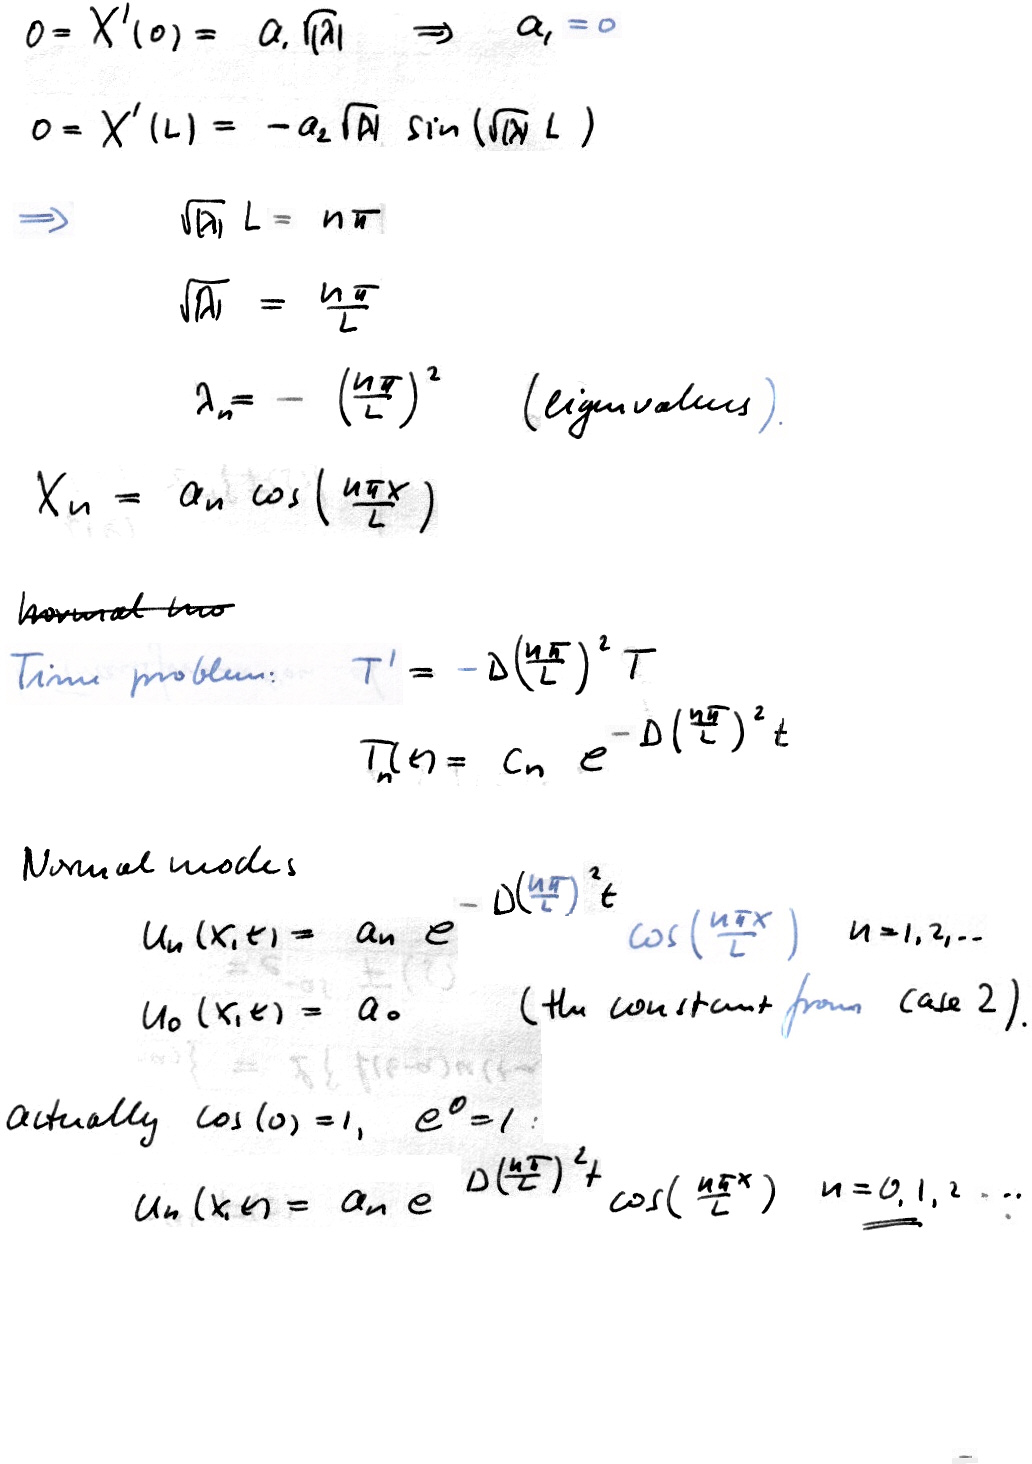 0 = X'(0) = a₁ √|λ| ⇒ a₁ = 0
0 = X'(L) = -a₂ √|λ| sin (√|λ| L )
⇒ √|λ| L = nπ
√|λ| = nπ/L
λₙ = - (nπ/L)² (eigenvalues).
Xₙ = aₙ cos (nπx/L)
normal mo
Time problem: T' = -D(nπ/L)² T
Tₙ(t) = cₙ e^{-D(nπ/L)² t}
Normal modes
uₙ(x,t) = aₙ e^{-D(nπ/L)² t} cos(nπx/L) n=1,2,..
u₀(x,t) = a₀ (the constant from case 2).
actually cos(0)=1, e⁰=1:
uₙ(x,t) = aₙ e^{D(nπ/L)² t} cos(nπx/L) n=0,1,2 ...